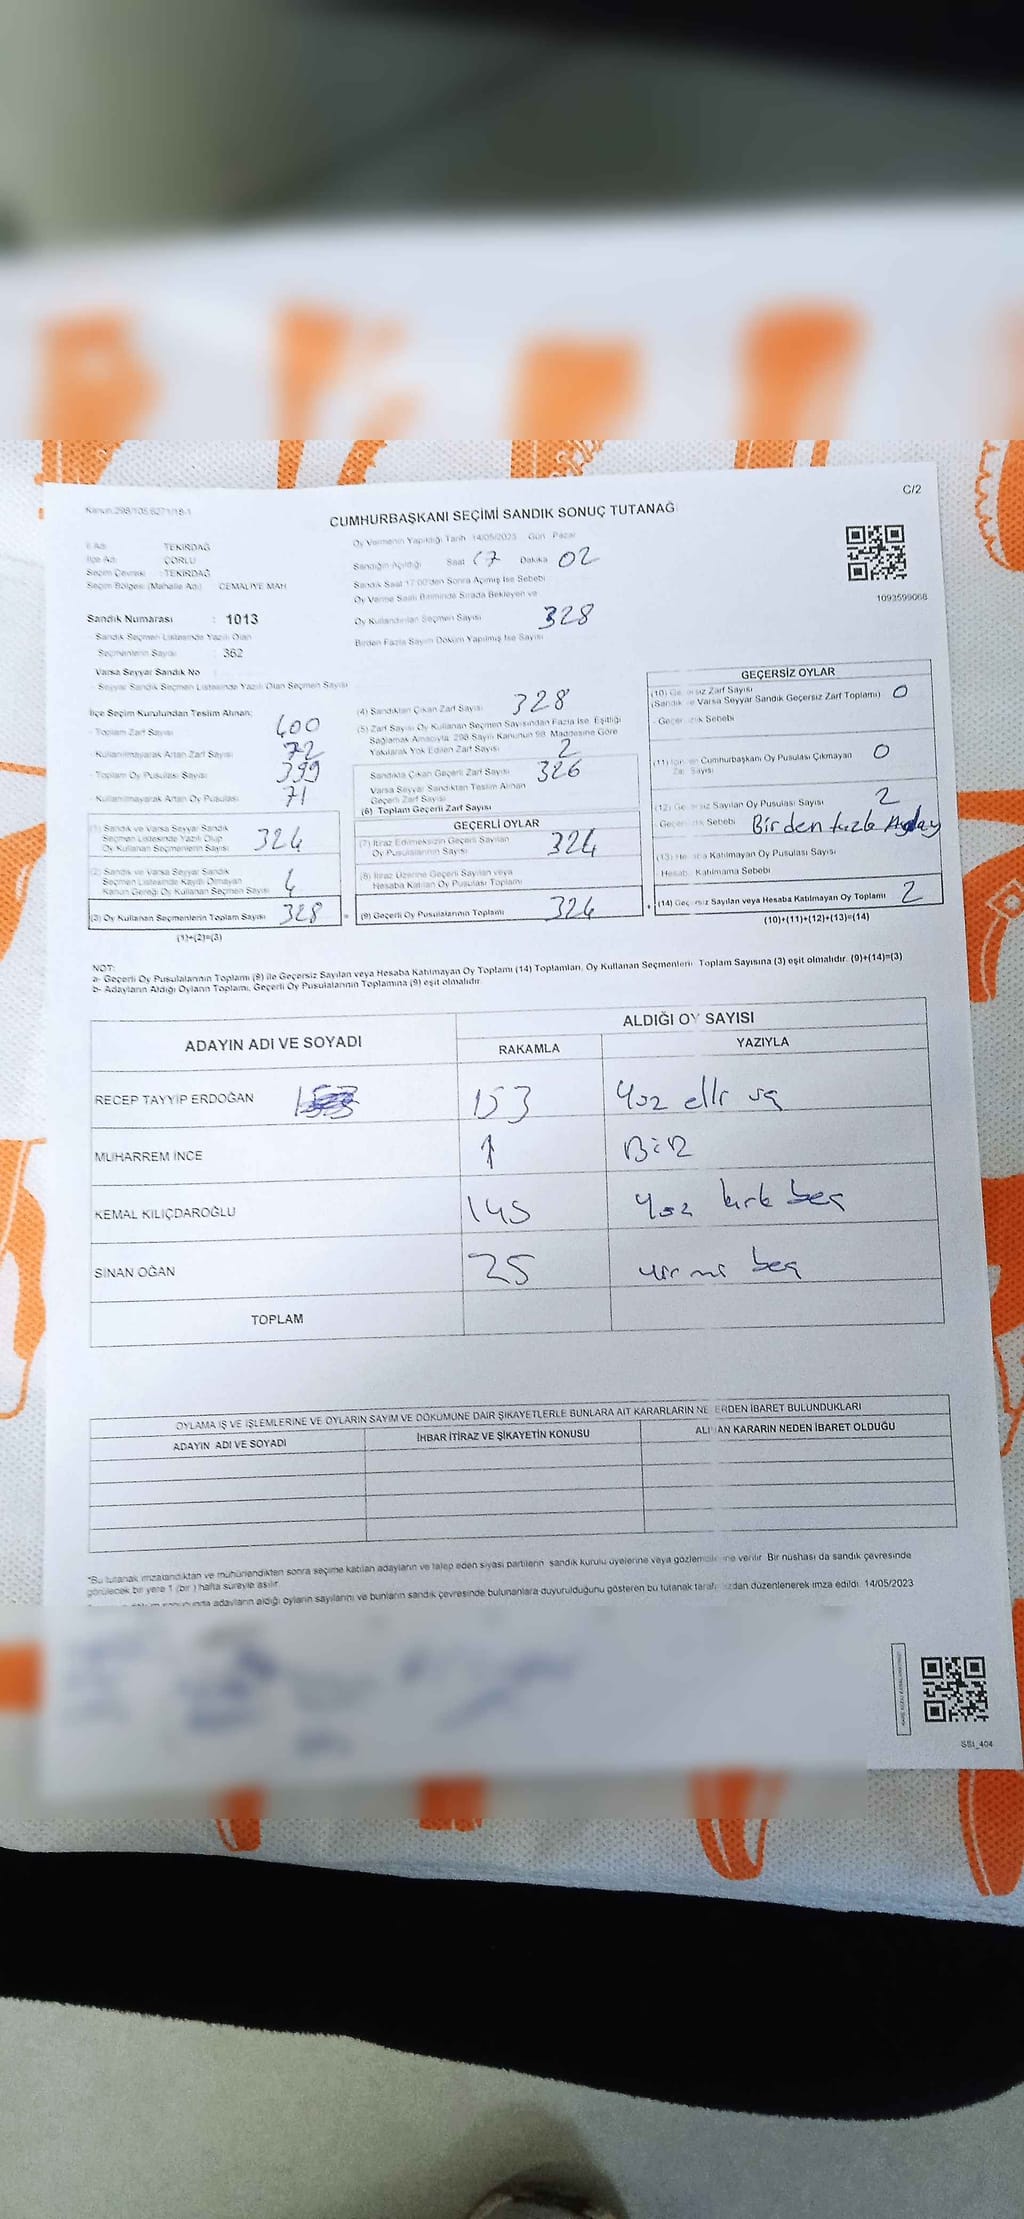 C/2
Kanun:298/105,6271/18-1
CUMHURBAŞKANI SEÇİMİ SANDIK SONUÇ TUTANAĞ
İl Adı : TEKİRDAĞ
İlçe Adı : ÇORLU
Seçim Çevresi : TEKİRDAĞ
Seçim Bölgesi (Mahalle Adı) CEMALİYE MAH
Sandık Numarası : 1013
Sandık Seçmen Listesinde Yazılı Olan
Seçmenlerin Sayısı : 362
Varsa Seyyar Sandık No
Seyyar Sandık Seçmen Listesinde Yazılı Olan Seçmen Sayısı
Oy Vermenin Yapıldığı Tarih 14/05/2023 Gün Pazar
Sandığın Açıldığı Saat 17 Dakika 02
Sandık Saat 17:00'den Sonra Açılmış İse Sebebi
Oy Verme Saati Bitiminde Sırada Bekleyen ve
Oy Kullandırılan Seçmen Sayısı 328
Birden Fazla Sayım Döküm Yapılmış İse Sayısı
1093599068
İlçe Seçim Kurulundan Teslim Alınan;
- Toplam Zarf Sayısı 400
- Kullanılmayarak Artan Zarf Sayısı 72
- Toplam Oy Pusulası Sayısı 399
- Kullanılmayarak Artan Oy Pusulası 71
(1) Sandık ve Varsa Seyyar Sandık
Seçmen Listesinde Yazılı Olup
Oy Kullanan Seçmenlerin Sayısı 324
(2) Sandık ve Varsa Seyyar Sandık
Seçmen Listesinde Kaydı Olmayan
Kanun Gereği Oy Kullanan Seçmen Sayısı 4
(3) Oy Kullanan Seçmenlerin Toplam Sayısı 328
(1)+(2)=(3)
(4) Sandıktan Çıkan Zarf Sayısı 328
(5) Zarf Sayısı Oy Kullanan Seçmen Sayısından Fazla İse, Eşitliği
Sağlamak Amacıyla, 298 Sayılı Kanunun 98. Maddesine Göre
Yakılarak Yok Edilen Zarf Sayısı 2
Sandıkta Çıkan Geçerli Zarf Sayısı 326
Varsa Seyyar Sandıktan Teslim Alınan
Geçerli Zarf Sayısı
(6) Toplam Geçerli Zarf Sayısı
GEÇERLİ OYLAR
(7) İtiraz Edilmeksizin Geçerli Sayılan
Oy Pusulalarının Sayısı 324
(8) İtiraz Üzerine Geçerli Sayılan veya
Hesaba Katılan Oy Pusulası Toplamı
(9) Geçerli Oy Pusulalarının Toplamı 324
GEÇERSİZ OYLAR
(10) Ge ersiz Zarf Sayısı
(Sandık ve Varsa Seyyar Sandık Geçersiz Zarf Toplamı) 0
- Geçersizlik Sebebi
(11) Cumhurbaşkanı Oy Pusulası Çıkmayan
Zarf Sayısı 0
(12) Geçersiz Sayılan Oy Pusulası Sayısı 2
- Geçersizlik Sebebi Birden fazla Aday
(13) Hesaba Katılmayan Oy Pusulası Sayısı
Hesaba Katılmama Sebebi
(14) Geçersiz Sayılan veya Hesaba Katılmayan Oy Toplamı 2
(10)+(11)+(12)+(13)=(14)
NOT:
a- Geçerli Oy Pusulalarının Toplamı (9) ile Geçersiz Sayılan veya Hesaba Katılmayan Oy Toplamı (14) Toplamları, Oy Kullanan Seçmenlerin Toplam Sayısına (3) eşit olmalıdır. (9)+(14)=(3)
b- Adayların Aldığı Oyların Toplamı, Geçerli Oy Pusulalarının Toplamına (9) eşit olmalıdır.
ADAYIN ADI VE SOYADI ALDIĞI OY SAYISI
RAKAMLA YAZIYLA
RECEP TAYYİP ERDOĞAN 153 153 Yüz elli üç
MUHARREM İNCE 1 BİR
KEMAL KILIÇDAROĞLU 145 Yüz kırk beş
SİNAN OĞAN 25 yirmi beş
TOPLAM
OYLAMA İŞ VE İŞLEMLERİNE VE OYLARIN SAYIM VE DÖKÜMÜNE DAİR ŞİKAYETLERLE BUNLARA AİT KARARLARIN NE ERDEN İBARET BULUNDUKLARI
ADAYIN ADI VE SOYADI İHBAR İTİRAZ VE ŞİKAYETİN KONUSU ALINAN KARARIN NEDEN İBARET OLDUĞU
*Bu tutanak imzalandıktan ve mühürlendikten sonra seçime katılan adayların ve talep eden siyasi partilerin sandık kurulu üyelerine veya gözlemcilerine verilir. Bir nüshası da sandık çevresinde
görülecek bir yere 1 (bir) hafta süreyle asılır.
adayların aldığı oyların sayılarını ve bunların sandık çevresinde bulunanlara duyurulduğunu gösteren bu tutanak tarafımızdan düzenlenerek imza edildi. 14/05/2023
SSt_404